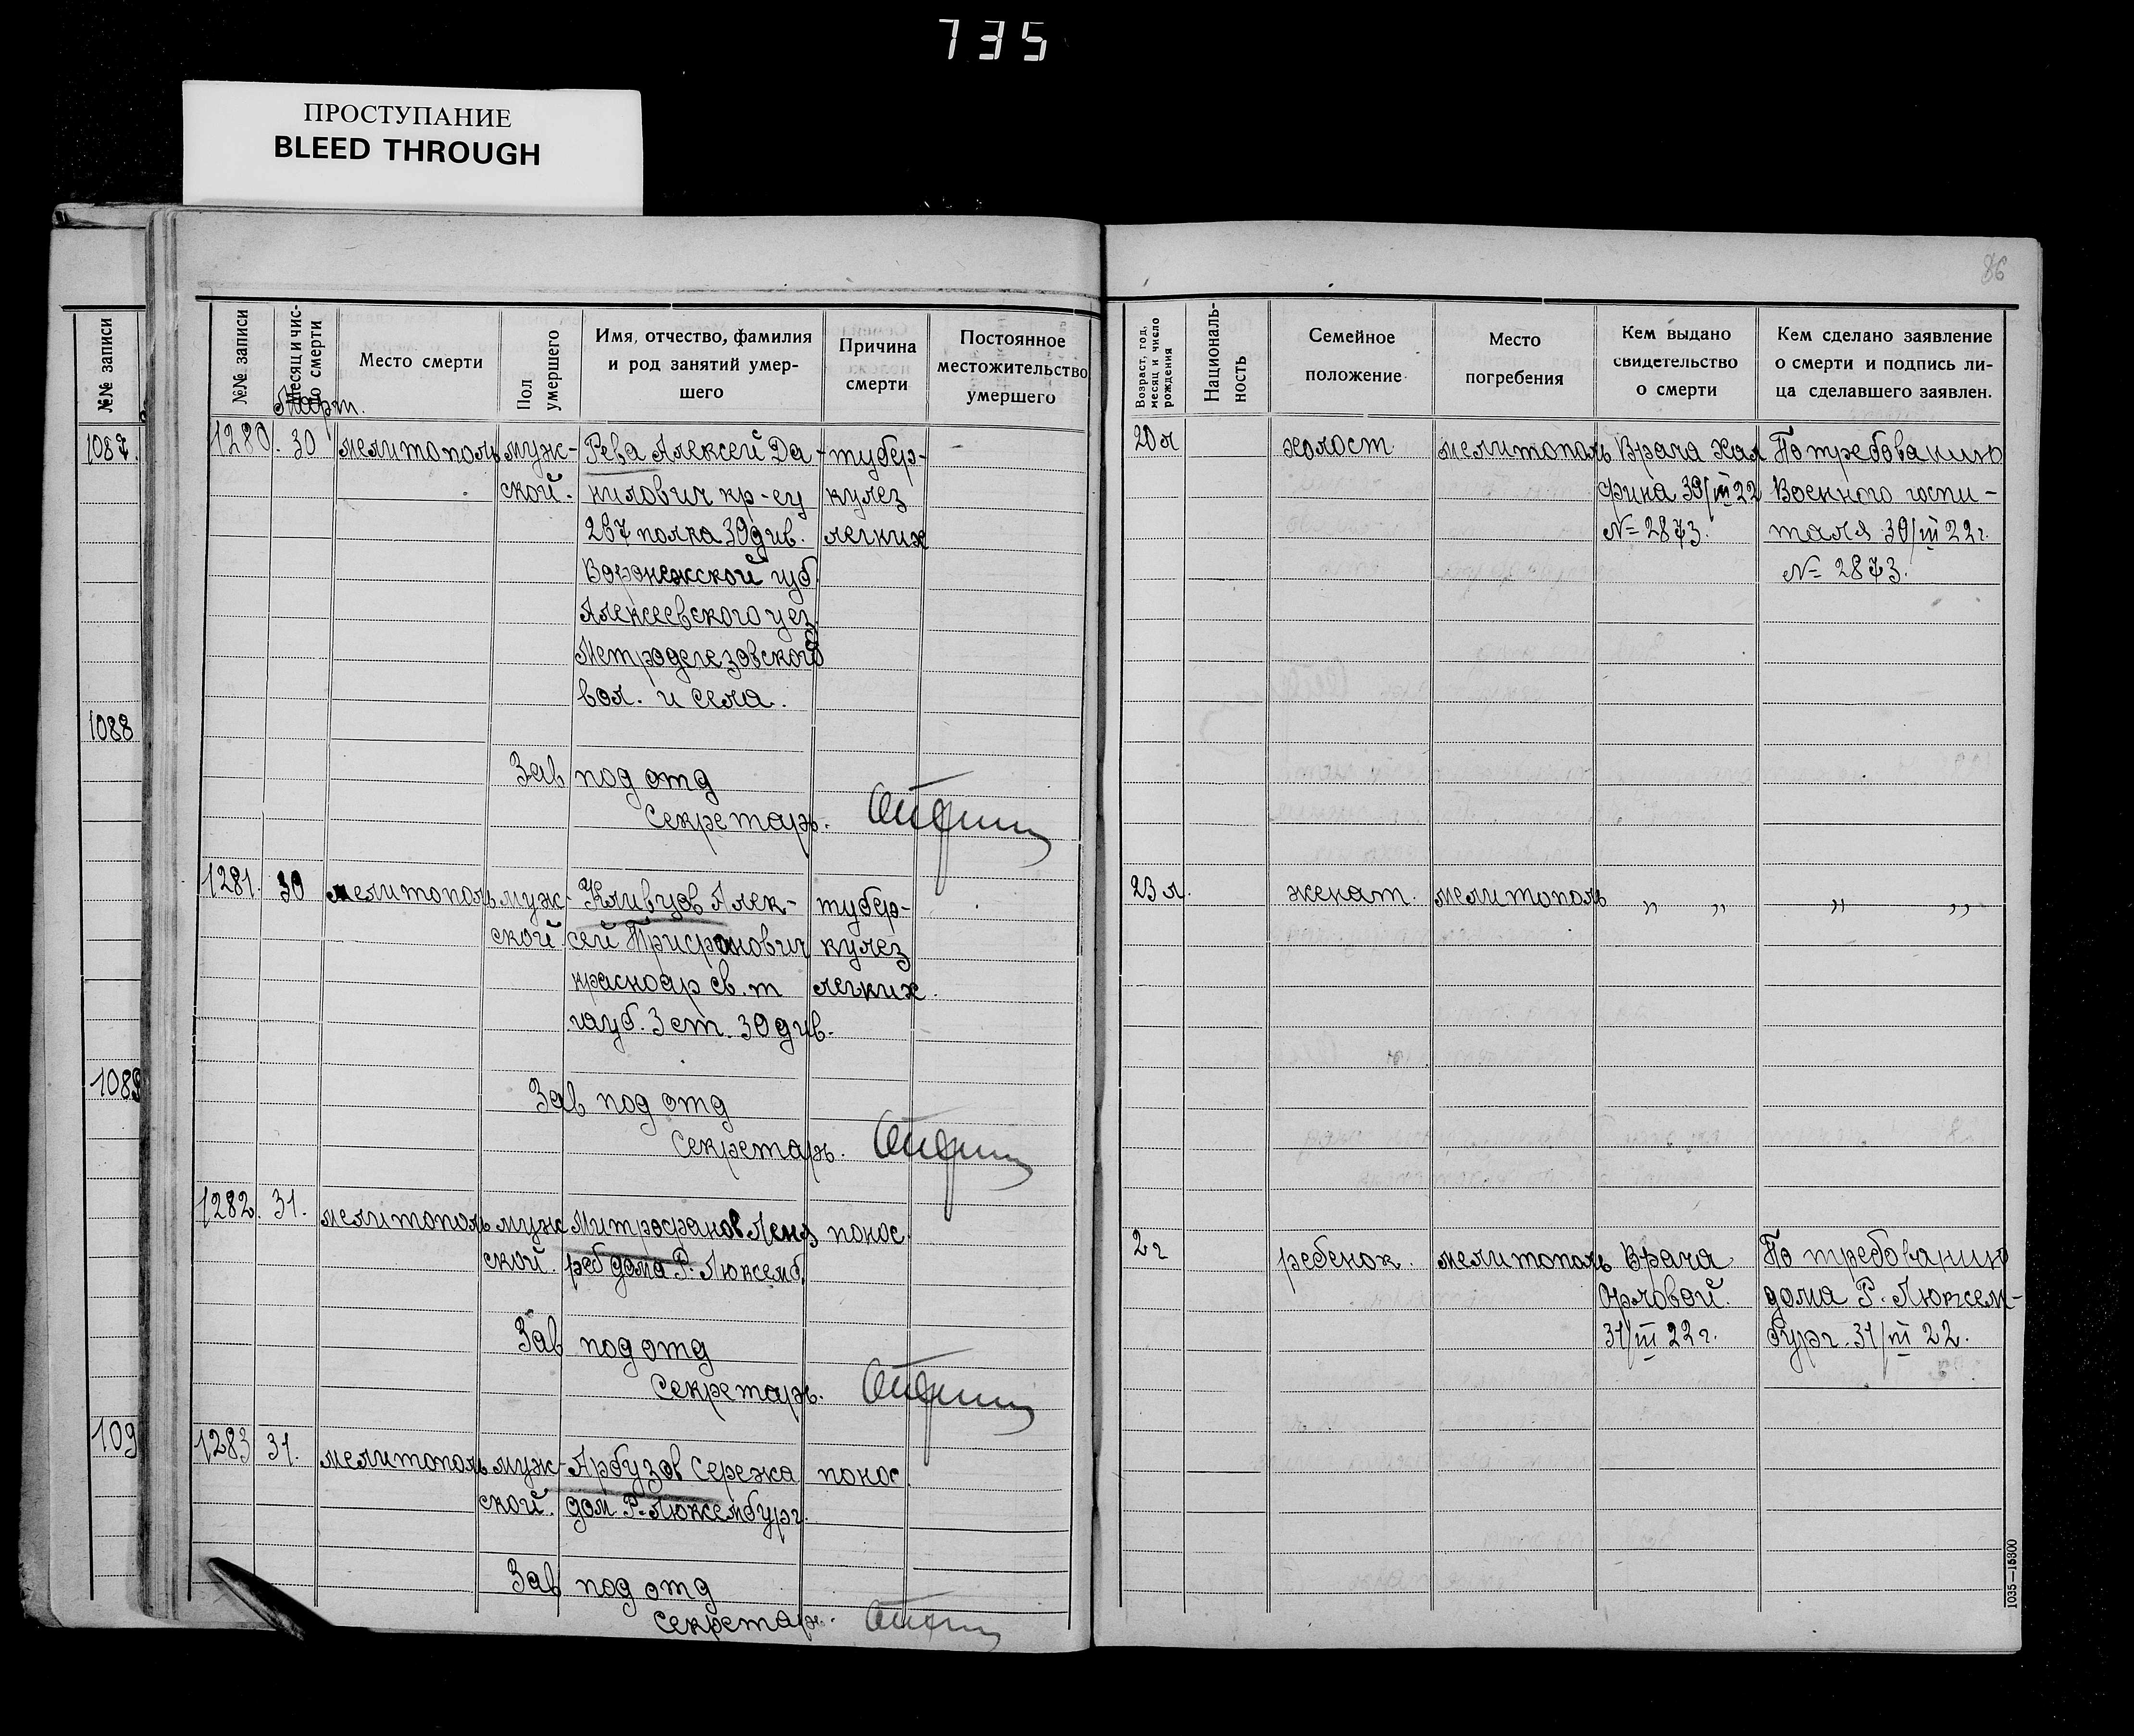 735
ПРОСТУПАНИЕ
BLEED THROUGH
86
№№ записи
1087.
1088
1089
109
№№ записи
Месяц и чис-
ло смерти
Март.
Место смерти
Пол
умершего
Имя, отчество, фамилия
и род занятий умер-
шего
Причина
смерти
Постоянное
местожительство
умершего
Возраст, год,
месяц и число
рождения
Националь-
ность
Семейное
положение
Место
погребения
Кем выдано
свидетельство
о смерти
Кем сделано заявление
о смерти и подпись ли-
ца сделавшего заявлен.
1280. 30 мелитополь муж- Рева Алексей Да- тубер- 20 л холост. мелитополь Врача Хал По требованию
ской. нилович кр-ец кулез фина 30/III 22 Военного госпи-
267 полка 30 див. легких № 2873. таля 30/III 22 г.
Воронежской губ № 2873.
Алексеевского уез
вол. и села.
Зав под отд
Секретарь.
1281. 30 мелитополь муж- Кливцов Алек- тубер- 23 л. женат. мелитополь „ „ „ „
ской сей кулез
легких.
3 ст. 30 див.
Зав под отд
Секретарь.
1282. 31. мелитополь муж Митрофанов Леня понос. 2 г ребенок. мелитополь Врача По требованию
ской. реб дома Р. Люксемб. Орловой. дома Р. Люксем-
31/III 22 г. бург. 31/III 22.
Зав под отд
Секретарь.
1283 31. мелитополь муж- Арбузов Сережа понос.
ской. дом Р. Люксембург.
Зав под отд
Секретарь.
1035—15300